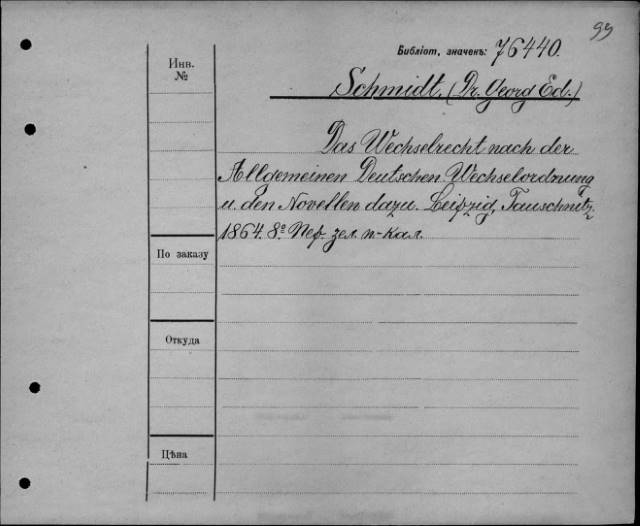 99
Библіот. значекъ: 76440.
Инв.
№
Schmidt. (Dr. Georg Ed.)
Das Wechselrecht nach der
Allgemeinen Deutschen Wechselordnung
u. den Novellen dazu. Leipzig, Tauschnitz,
1864. 8º. Пер. зел. п-кал.
По заказу
Откуда
Цѣна